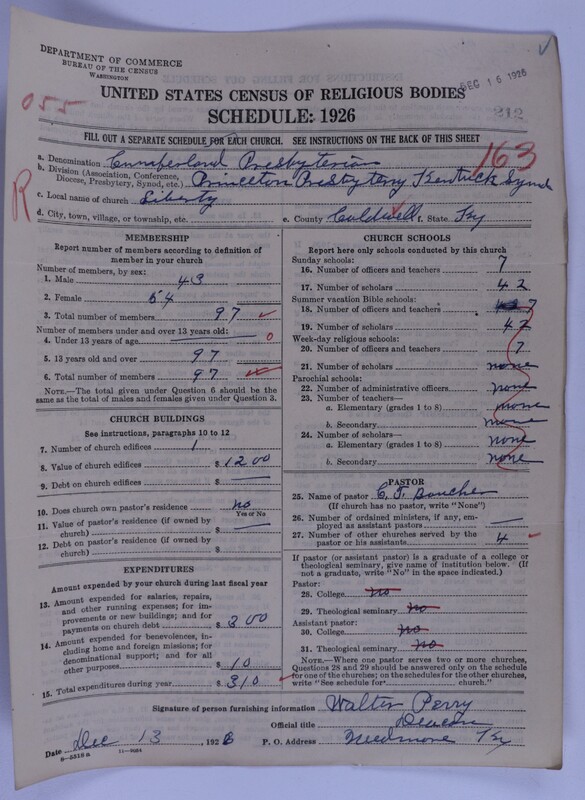 DEPARTMENT OF COMMERCE
BUREAU OF THE CENSUS
WASHINGTON
DEC 16 1926
UNITED STATES CENSUS OF RELIGIOUS BODIES
055
SCHEDULE: 1926
212
FILL OUT A SEPARATE SCHEDULE FOR EACH CHURCH. SEE INSTRUCTIONS ON THE BACK OF THIS SHEET
163
a. Denomination Cumberland Presbyterian
b. Division (Association, Conference, Diocese, Presbytery, Synod, etc.) Princeton Presbytery
R
c. Local name of church Liberty
d. City, town, village, or township, etc. e. County Caldwell f. State Ky
MEMBERSHIP
Report number of members according to definition of member in your church
Number of members, by sex:
1. Male 43
2. Female 54
3. Total number of members 97
Number of members under and over 13 years old:
4. Under 13 years of age 0
5. 13 years old and over 97
6. Total number of members 97
NOTE.—The total given under Question 6 should be the same as the total of males and females given under Question 3.
CHURCH BUILDINGS
See instructions, paragraphs 10 to 12
7. Number of church edifices 1
8. Value of church edifices $ 1200
9. Debt on church edifices $
10. Does church own pastor's residence? no
Yes or No
11. Value of pastor's residence (if owned by church) $
12. Debt on pastor's residence (if owned by church) $
EXPENDITURES
Amount expended by your church during last fiscal year
13. Amount expended for salaries, repairs, and other running expenses; for improvements or new buildings; and for payments on church debt $ 300
14. Amount expended for benevolences, including home and foreign missions; for denominational support; and for all other purposes $ 10
15. Total expenditures during year $ 310
CHURCH SCHOOLS
Report here only schools conducted by this church
Sunday schools:
16. Number of officers and teachers 7
17. Number of scholars 42
Summer vacation Bible schools:
18. Number of officers and teachers 7
19. Number of scholars 42
Week-day religious schools:
20. Number of officers and teachers 7
21. Number of scholars none
Parochial schools:
22. Number of administrative officers none
23. Number of teachers—
a. Elementary (grades 1 to 8) none
b. Secondary none
24. Number of scholars—
a. Elementary (grades 1 to 8) none
b. Secondary none
PASTOR
25. Name of pastor
(If church has no pastor, write "None")
26. Number of ordained ministers, if any, employed as assistant pastors
27. Number of other churches served by the pastor or his assistants 4
If pastor (or assistant pastor) is a graduate of a college or theological seminary, give name of institution below. (If not a graduate, write "No" in the space indicated.)
Pastor:
28. College no
29. Theological seminary no
Assistant pastor:
30. College no
31. Theological seminary no
NOTE.—Where one pastor serves two or more churches, Questions 28 and 29 should be answered only on the schedule for one of the churches; on the schedules for the other churches, write "See schedule for church."
Signature of person furnishing information Walter Perry
Official title Deacon
Date Dec 13, 1926 P. O. Address Ky
8-5318a 11-8684